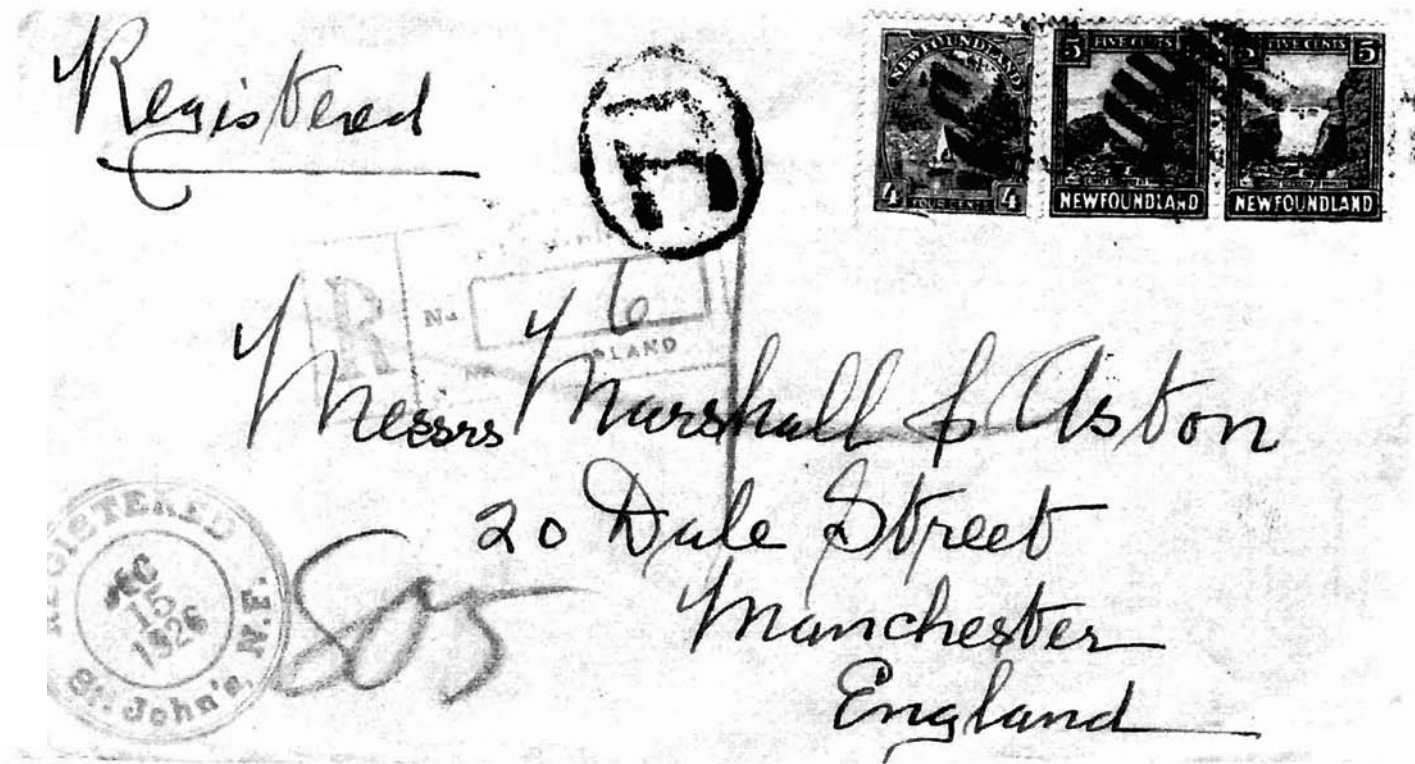 Registered
NEWFOUNDLAND
4 FOUR CENTS 4
5 FIVE CENTS
NEWFOUNDLAND
5 FIVE CENTS 5
NEWFOUNDLAND
R
R
No 6
Messrs Marshall & Aston
20 Dale Street
Manchester
England
REGISTERED
DEC
15
1926
St. John's, N.F.
805